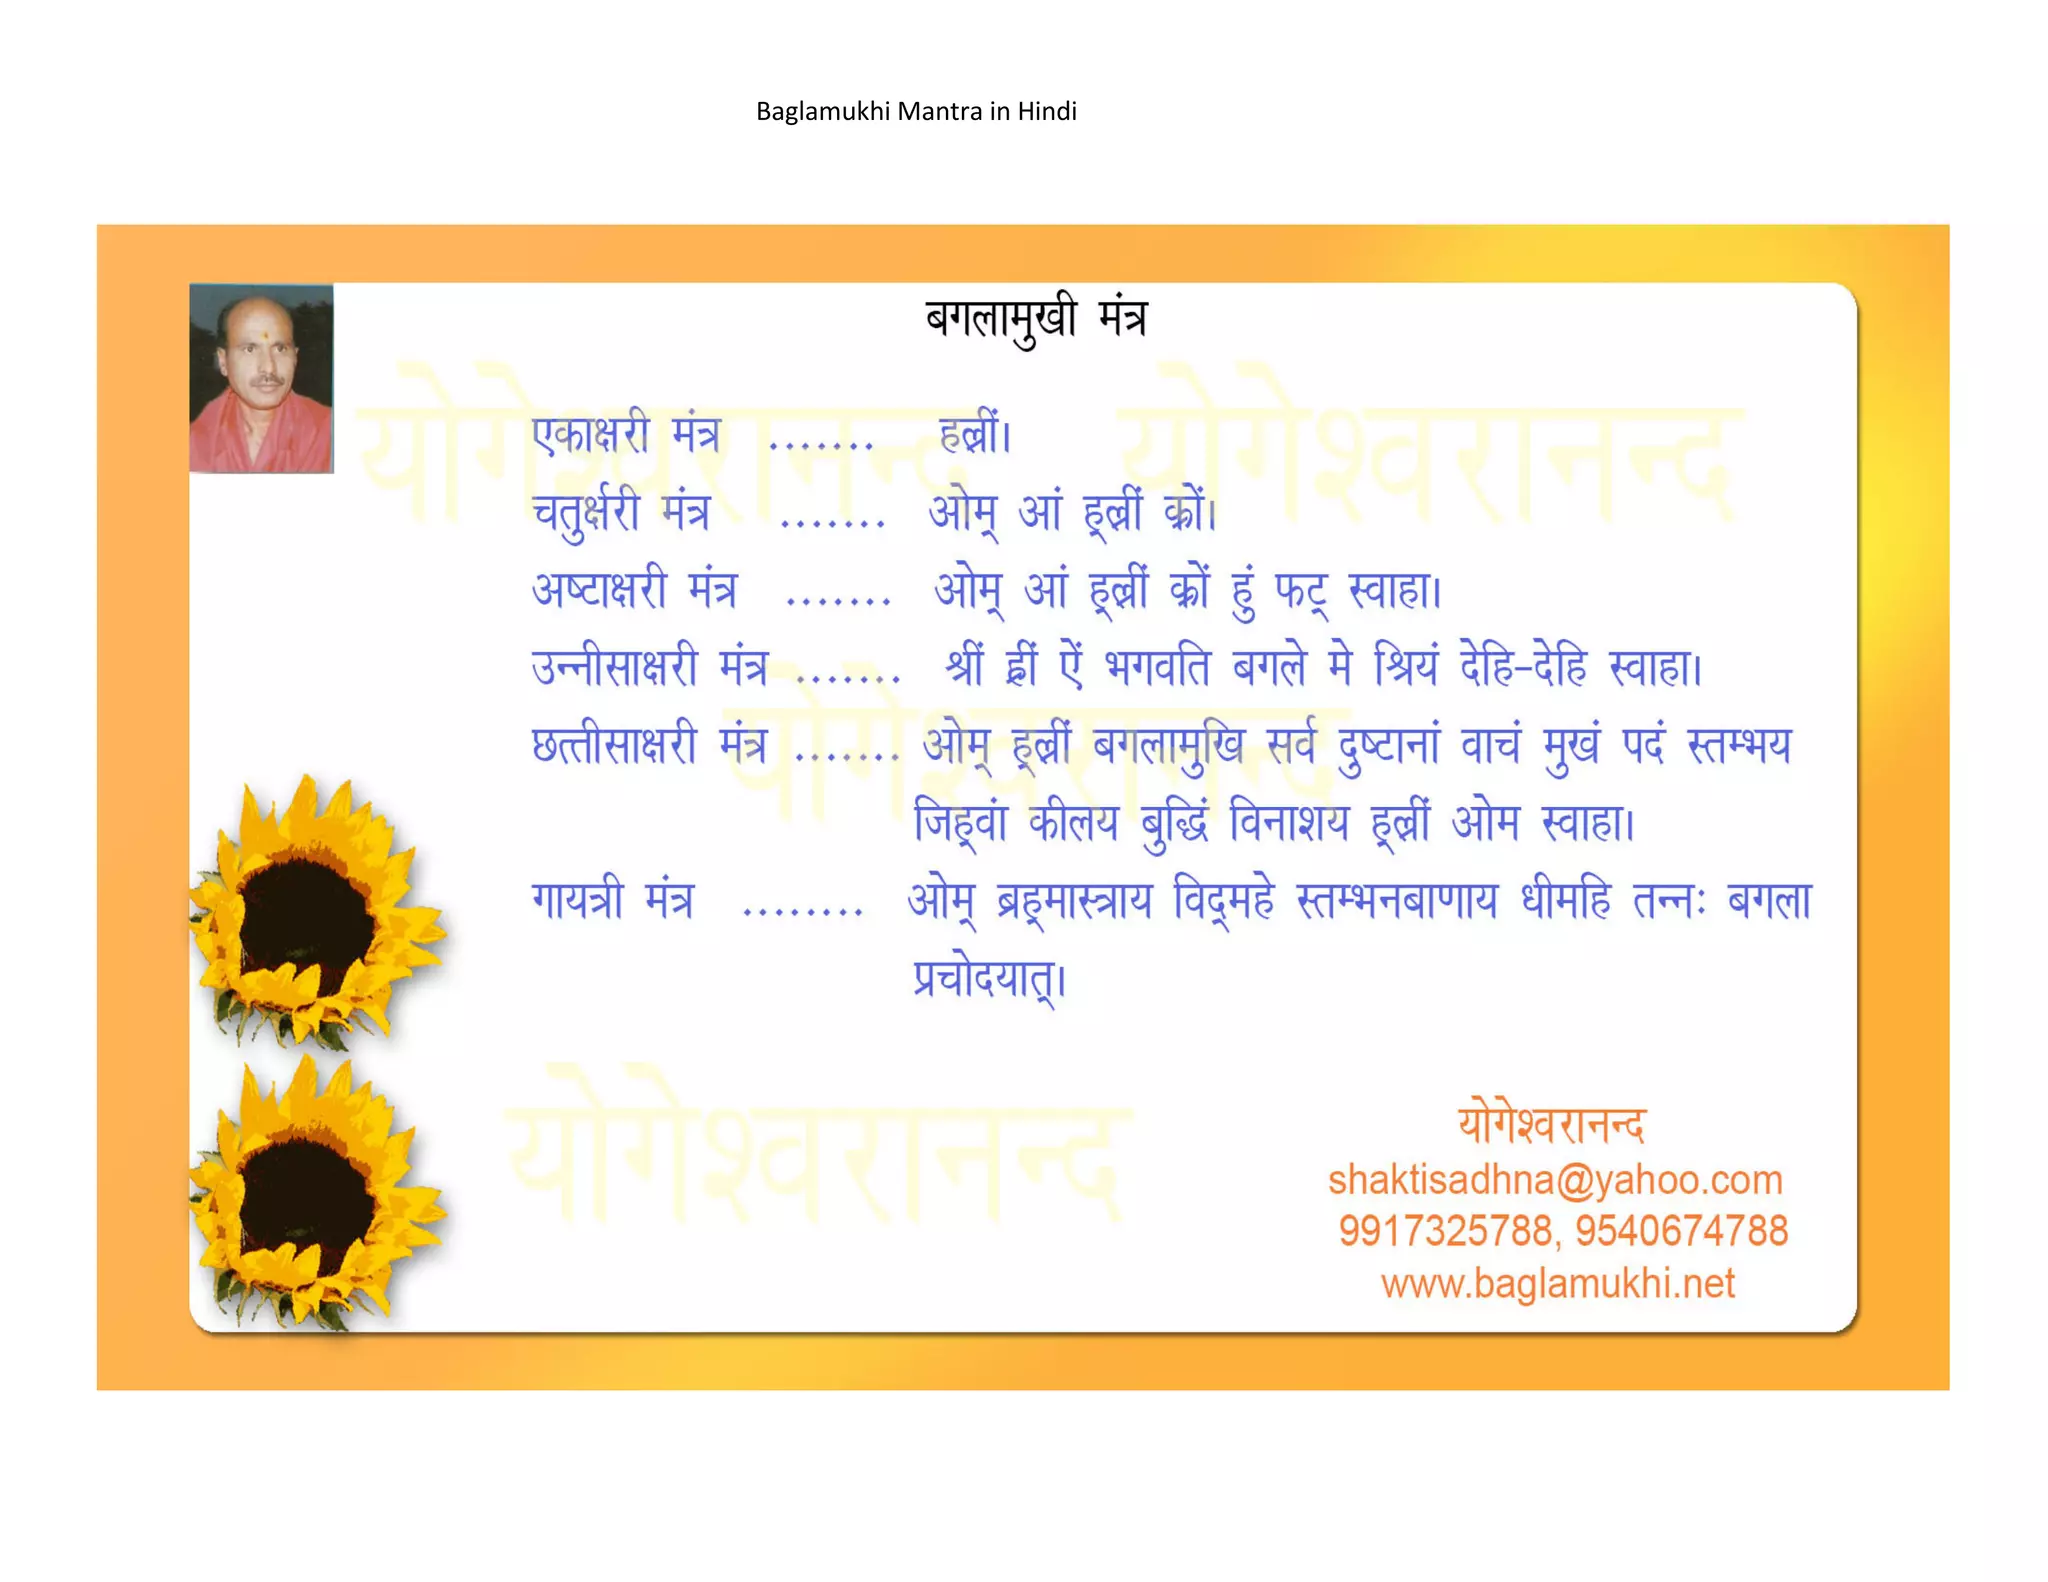 Baglamukhi Mantra in Hindi
बगलामुखी मंत्र
योगेश्वरानन्द योगेश्वरानन्द
एकाक्षरी मंत्र ....... हल्रीं।
चतुर्क्षरी मंत्र ....... ओम् आं ह्ल्रीं क्रों।
अष्टाक्षरी मंत्र ....... ओम् आं ह्ल्रीं क्रों हुं फट् स्वाहा।
उन्नीसाक्षरी मंत्र ....... श्रीं ह्रीं ऐं भगवति बगले मे श्रियं देहि-देहि स्वाहा।
योगेश्वरानन्द
छत्तीसाक्षरी मंत्र ....... ओम् ह्ल्रीं बगलामुखि सर्व दुष्टानां वाचं मुखं पदं स्तम्भय
जिह्वां कीलय बुद्धिं विनाशय ह्ल्रीं ओम स्वाहा।
गायत्री मंत्र ........ ओम् ब्रह्मास्त्राय विद्महे स्तम्भनबाणाय धीमहि तन्नः बगला
प्रचोदयात्।
योगेश्वरानन्द
योगेश्वरानन्द
shaktisadhna@yahoo.com
9917325788, 9540674788
www.baglamukhi.net